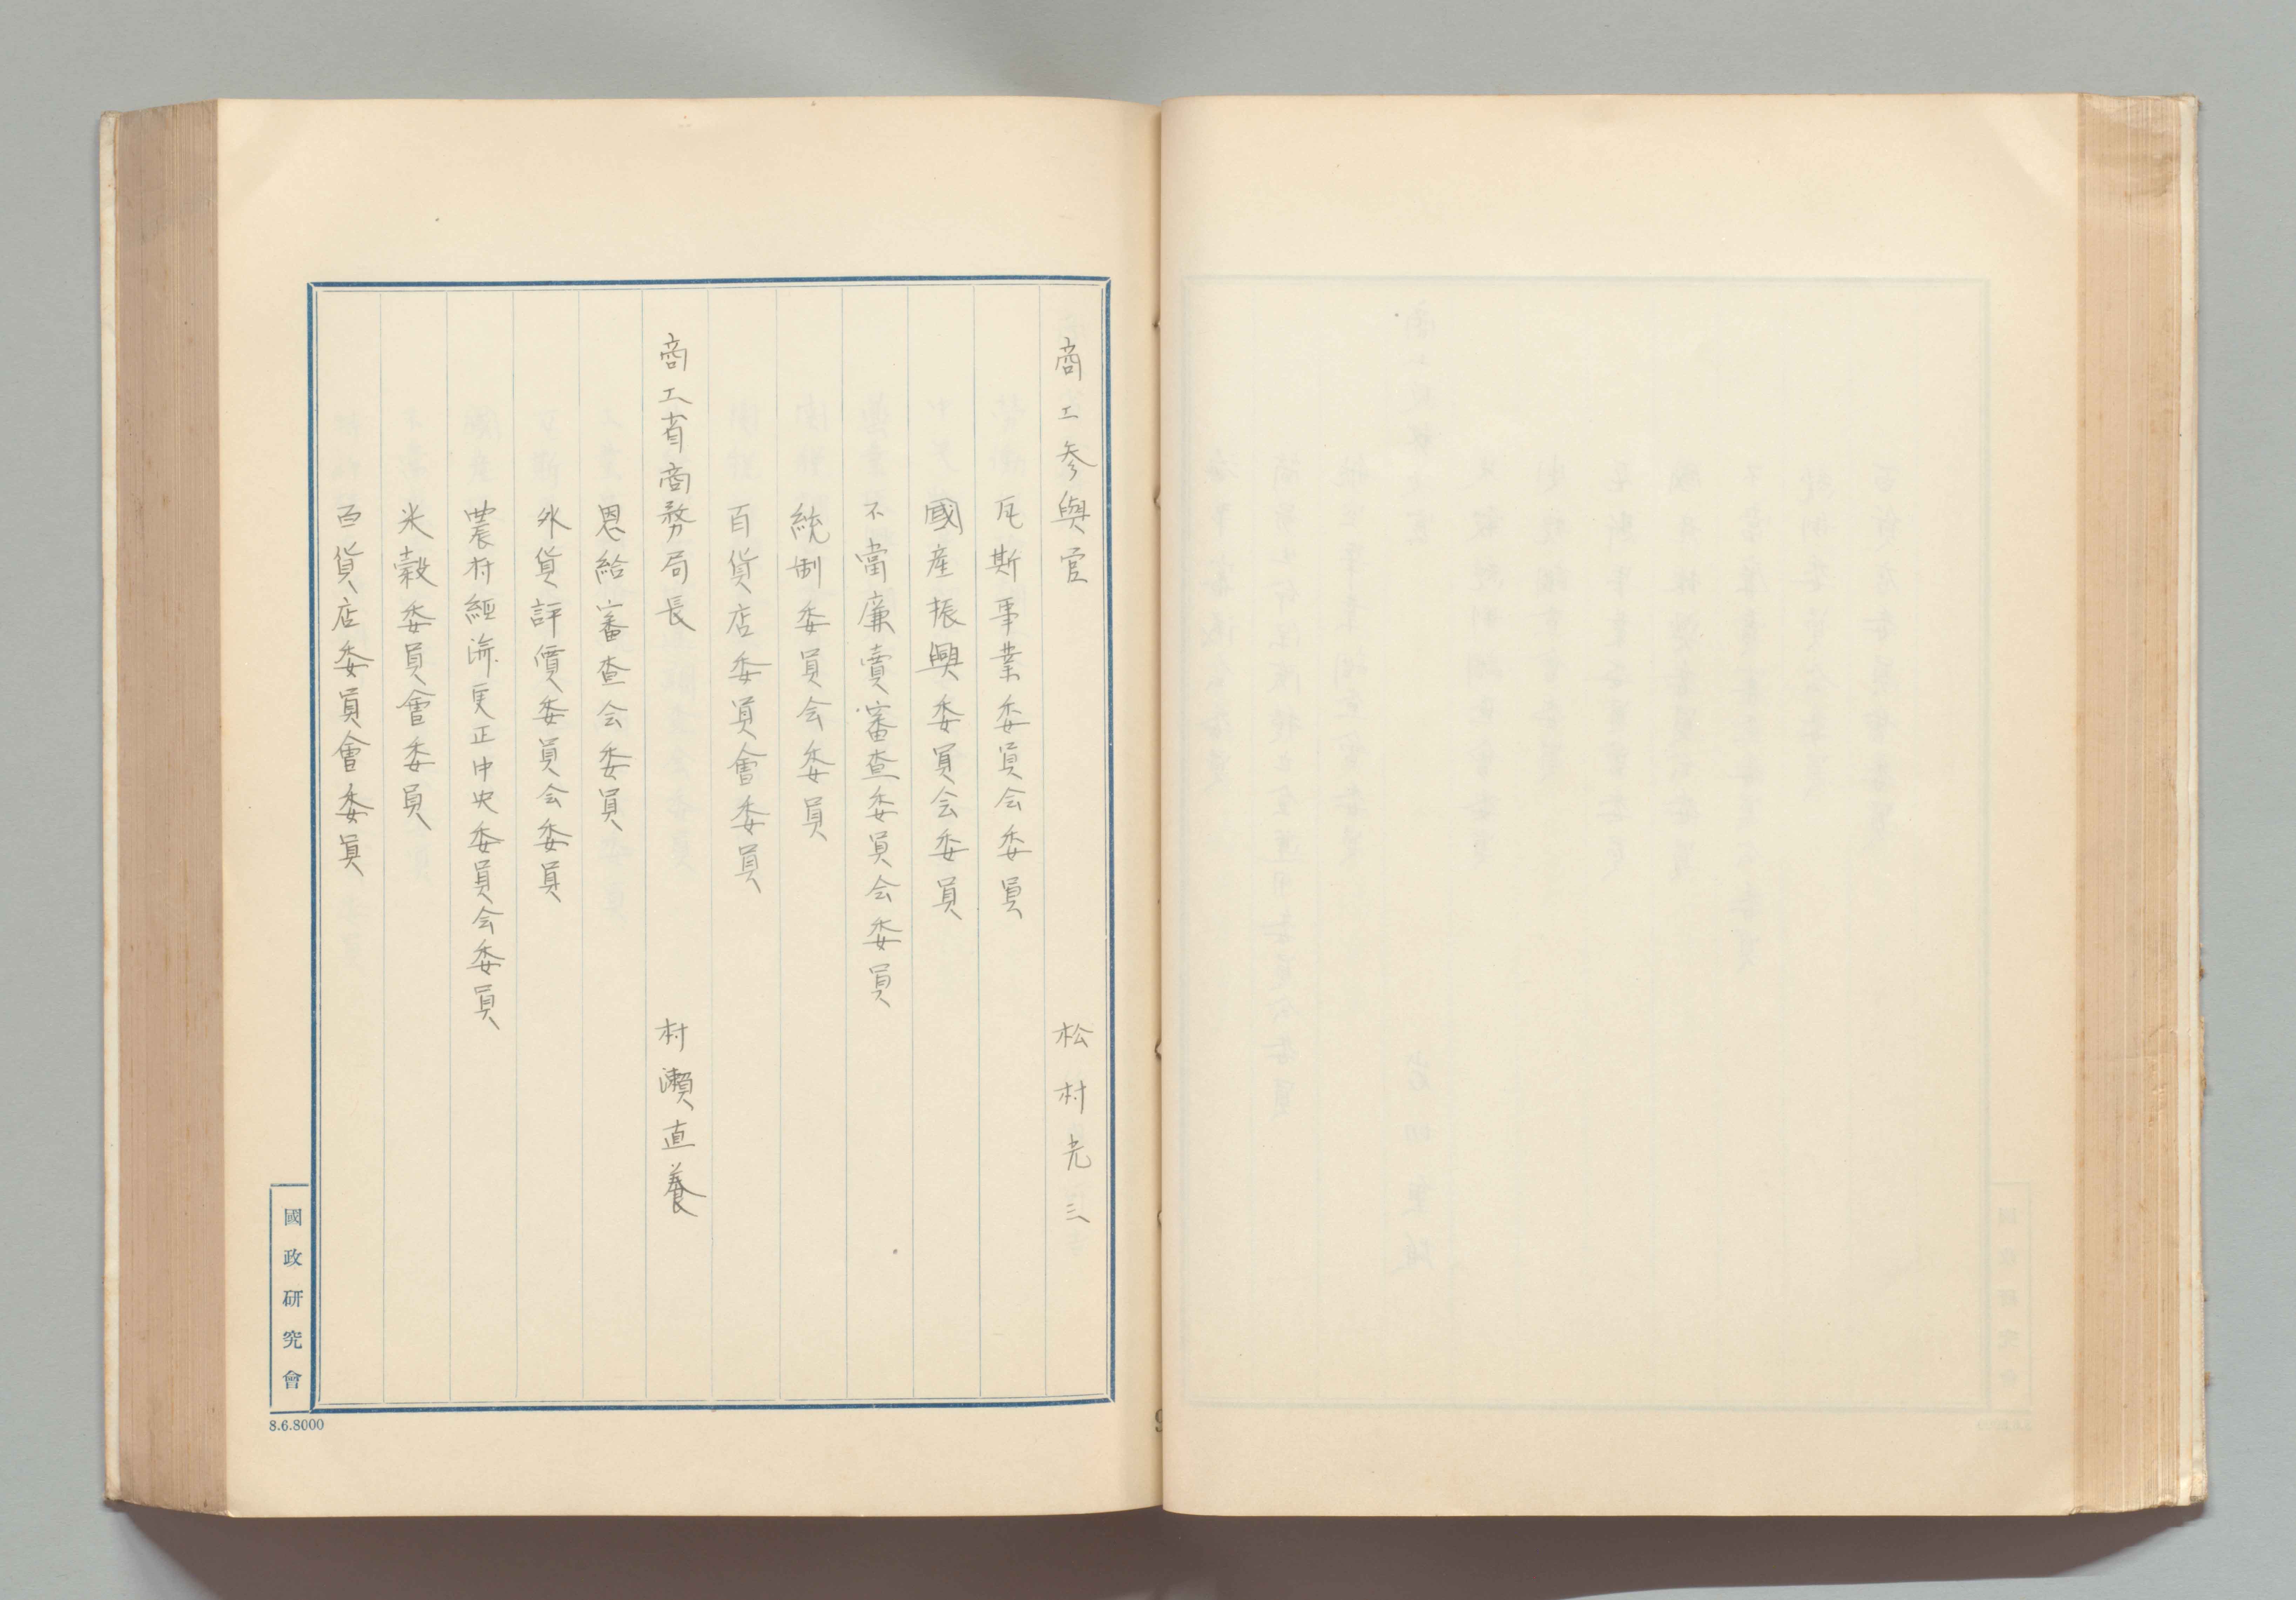 商工参與官 松村光三
瓦斯事業委員会委員
國産振興委員会委員
不當廉賣審査委員会委員
統制委員会委員
百貨店委員會委員
商工省商務局長 村瀬直養
恩給審査会委員
外貨評價委員会委員
農村経済更正中央委員会委員
米穀委員會委員
百貨店委員會委員
國政研究會
8.6.8000